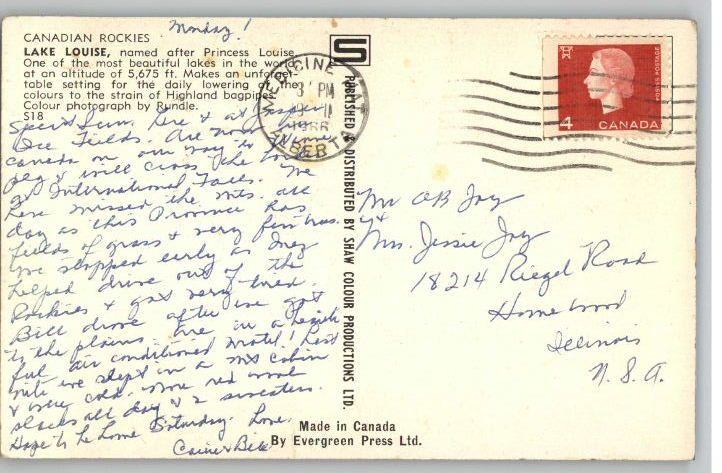 Monday!
CANADIAN ROCKIES
LAKE LOUISE, named after Princess Louise.
One of the most beautiful lakes in the world
at an altitude of 5,675 ft. Makes an unforget-
table setting for the daily lowering of the
colours to the skirl of Highland bagpipes.
Colour photograph by Rundle.
S18
Spent Sun. here & at
Ice Fields. Are now
Canada on our way to
peg & will cross the
at International Falls. We
have missed the mts. all
day as this Province has
fields of grass & very few trees.
We stopped early as Inez
helped drive out of the
Rockies & got very tired.
Bill drove after we got
to the plains. Are in a
ful air conditioned Motel! Last
nite we slept in a mts cabin
& were cold. Wore red wool
slacks all day & 2 sweaters.
Hope to be home Saturday. Love,
& Bill
MEDICINE
PM
1966
ALBERTA
S
PUBLISHED & DISTRIBUTED BY SHAW COLOUR PRODUCTIONS LTD.
POSTES POSTAGE
4 CANADA
Mr OB Joy
&
Mrs. Jessie Joy
18214 Riegel Road
Homewood
Illinois
U.S.A.
Made in Canada
By Evergreen Press Ltd.